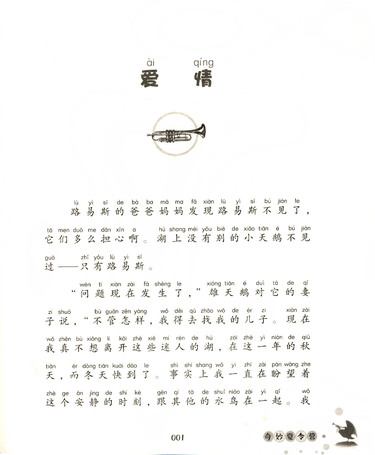 ài qíng
爱 情
lù yì sī de bà ba mā ma fā xiàn lù yì sī bú jiàn le
路易斯的爸爸妈妈发现路易斯不见了，
tā men duō me dān xīn a hú shang méi yǒu bié de xiǎo tiān é bú jiàn
它们多么担心啊。湖上没有别的小天鹅不见
guò zhǐ yǒu lù yì sī
过——只有路易斯。
wèn tí xiàn zài fā shēng le xióng tiān é duì tā de qī
“问题现在发生了，”雄天鹅对它的妻
zi shuō bù guǎn zěn yàng wǒ děi qù zhǎo wǒ de ér zi xiàn zài
子说，“不管怎样，我得去找我的儿子。现在
wǒ zhēn bù xiǎng lí kāi zhè xiē mí rén de hú zài zhè yì nián de qiū
我真不想离开这些迷人的湖，在这一年的秋
tiān ér dōng tiān kuài dào le shì shí shang wǒ yì zhí zài pàn wàng zhe
天，而冬天快到了。事实上我一直在盼望着
zhè ge ān jìng de shí kè gēn qí tā de shuǐ niǎo zài yì qǐ wǒ
这个安静的时刻，跟其他的水鸟在一起。我
001
奇妙夏令营